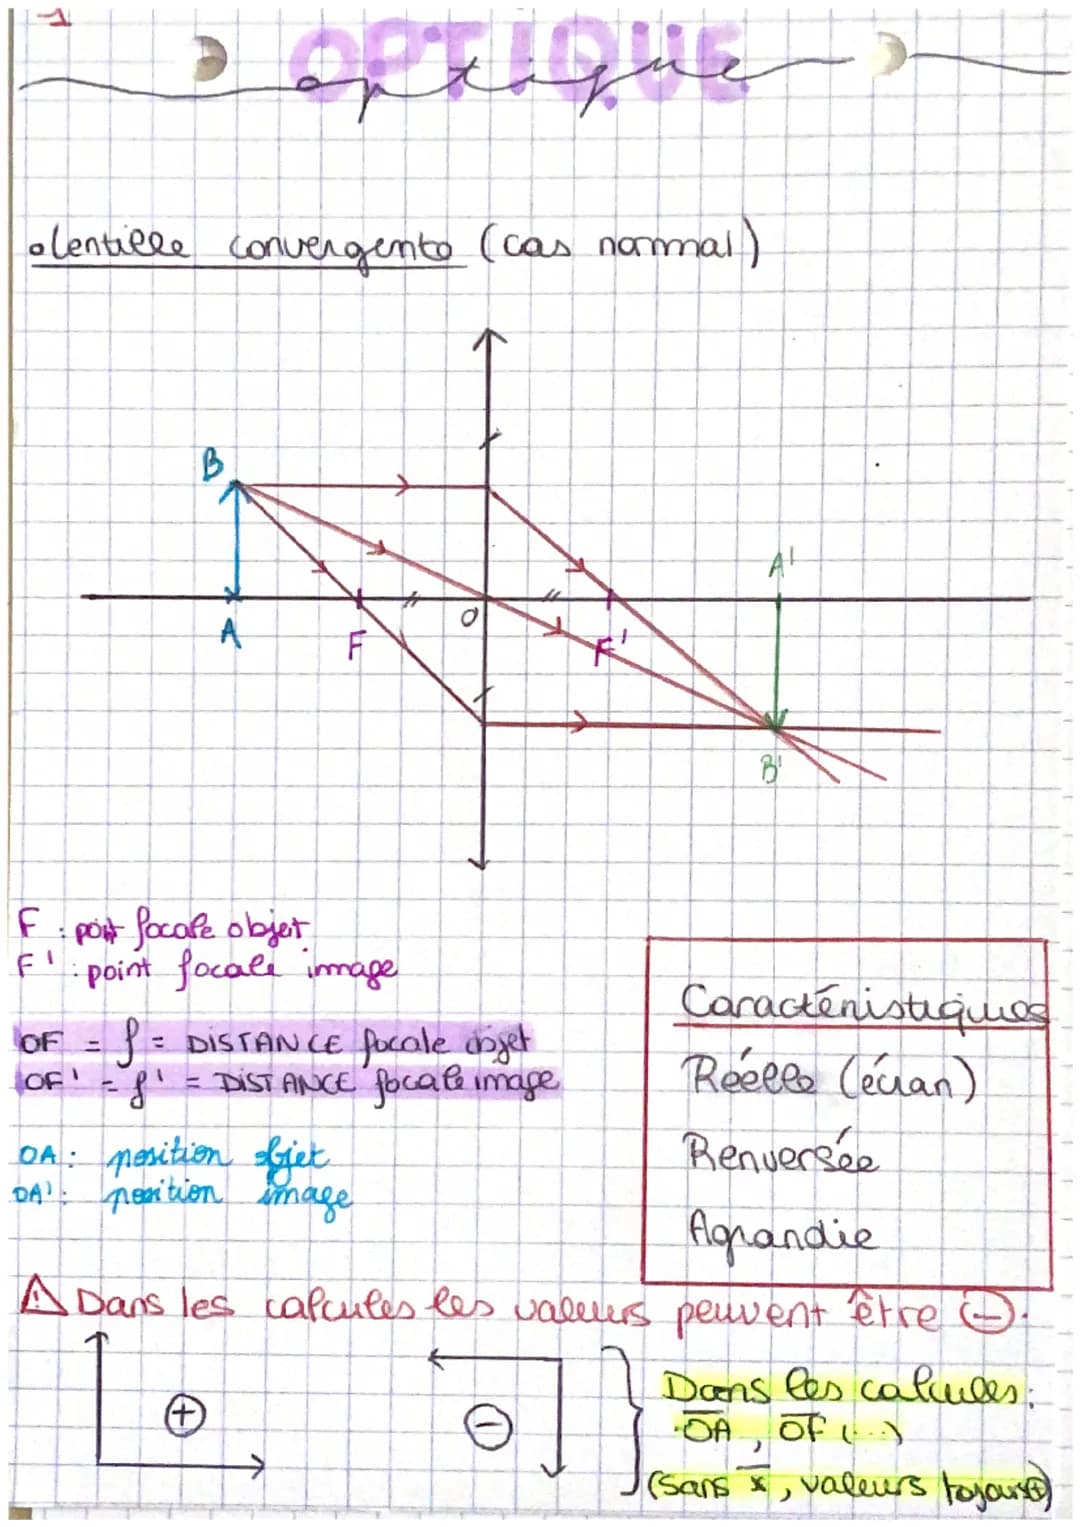 1
OPTIQUE
optique
• lentille convergente (cas normal)
B
A'
O
A
F
F'
B'
F : point focale objet
F' : point focale image
OF = f = DISTANCE focale objet
OF' = f' = DISTANCE focale image
OA : position objet
OA' : position image
Caractéristiques
Réelle (écran)
Renversée
Agrandie
⚠ Dans les calcules les valeurs peuvent être ⊖.
⊕
⊖
Dans les calcules:
• O̅A̅, O̅F̅ (...)
(sans x̅, valeurs toujours⊕)